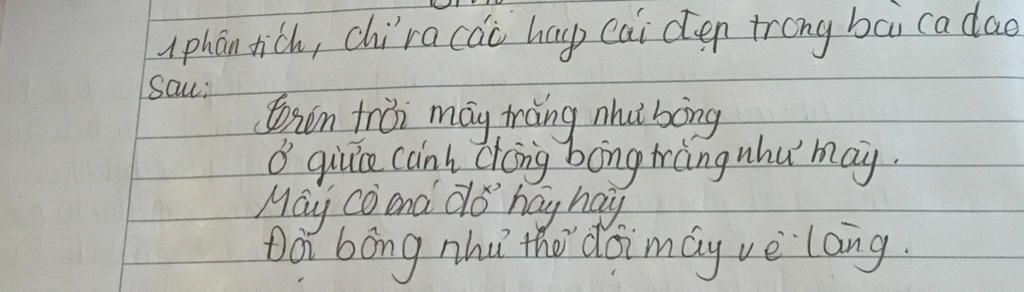 1 phân tích, chỉ ra cái hay cái đẹp trong bài ca dao
sau:
Trên trời mây trắng như bông
Ở giữa cánh đồng bông trắng như mây.
Mấy cô má đỏ hây hây
Đội bông như thể đội mây về làng.